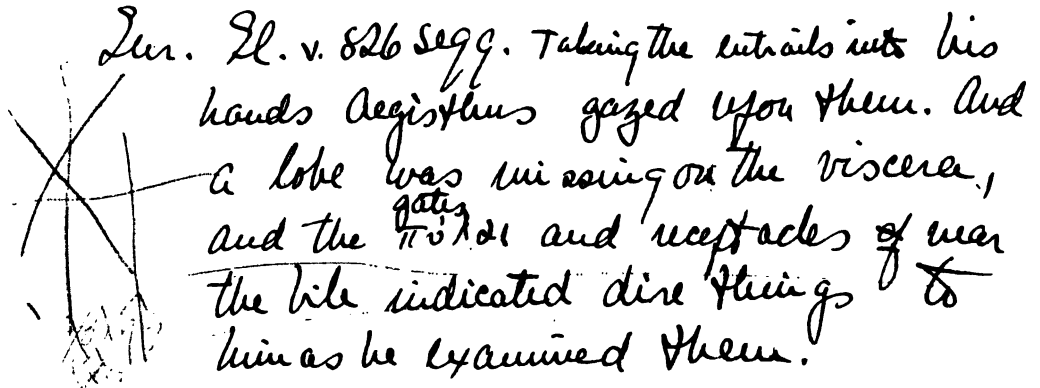 Eur. El. v. 826 seqq. Taking the entrails into his
hands Aegisthus gazed upon them. And
a lobe was missing on the viscera,
gates
and the πύλαι and receptacles of near
the bile indicated dire things to
him as he examined them.